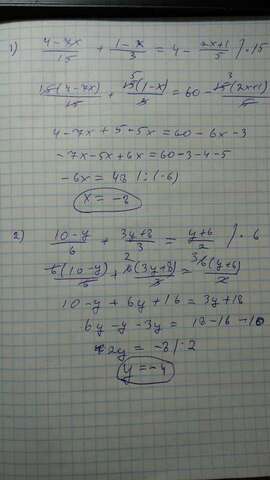 1) (4-7x)/15 + (1-x)/3 = 4 - (2x+1)/5 /·15
15(4-7x)/15 + 15(1-x)/3 5 = 60 - 15(2x+1)/5 3
4-7x+5-5x=60-6x-3
-7x-5x+6x=60-3-4-5
-6x=48 /:(-6)
x=-8
2) (10-y)/6 + (3y+8)/3 = (y+6)/2 /·6
6(10-y)/6 + 6(3y+8)/3 2 = 6(y+6)/2 3
10-y+6y+16=3y+18
6y-y-3y=18-16-10
2y=-8/:2
y=-4